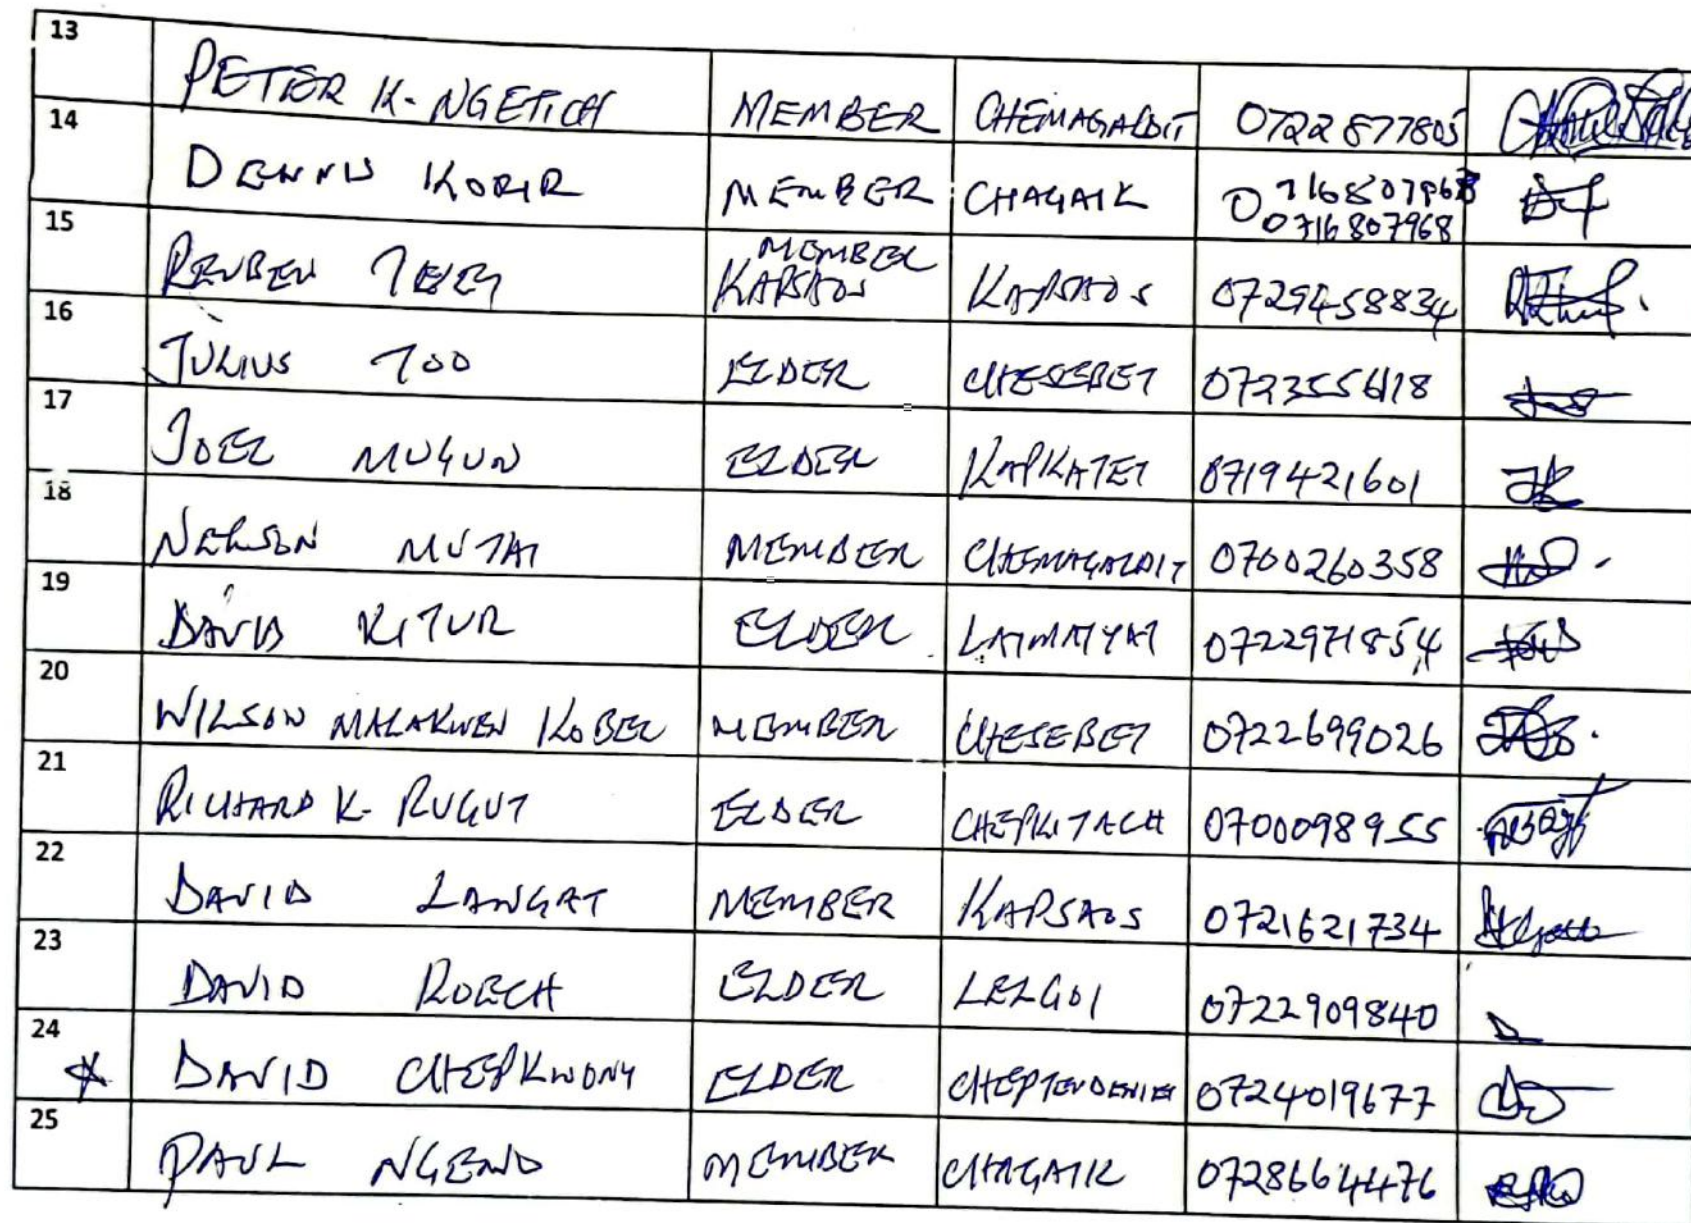 13 PETER K. NGETICH MEMBER CHEMAGALDIT 0722877805
14 DENNIS KORIR MEMBER CHAGAIK 0716807968
0716807968
15 REUBEN TEBEY MEMBER KAPSAOS KAPSAOS 0729458834
16 JULIUS TOO ELDER CHESEBET
17 JOEL MUGUN ELDER KAPKATET 0719421601
18 NELSON MUTAI MEMBER CHEMAGALDIT 0700260358
19 DAVID KITUR ELDER LAIMAIYAT 0722971854
20 WILSON MALAKWEN KOBEL MEMBER CHESEBET 0722699026
21 RICHARD K. RUGUT ELDER CHEPKITACH 0700098955
22 DAVID LANGAT MEMBER KAPSAOS 0721621734
23 DAVID ROECH ELDER LELGOI 0722909840
24 DAVID CHEPKWONY ELDER 0724019677
25 PAUL NGENO MEMBER CHAGAIK 0728664476